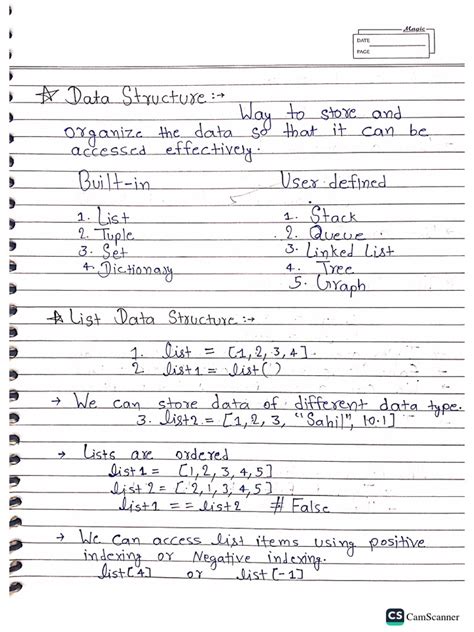 Magic
DATE
PAGE
☆ Data Structure :→
Way to store and
organize the data so that it can be
accessed effectively.
Built-in User defined
1. List 1. Stack
2. Tuple 2. Queue
3. Set 3. Linked List
4. Dictionary 4. Tree
5. Graph
☆ List Data Structure :→
1. list = [1, 2, 3, 4].
2 list1 = list()
→ We can store data of different data type.
3. list2 = [1, 2, 3, "Sahil", 10.1]
→ Lists are ordered
list1 = [1, 2, 3, 4, 5]
list2 = [2, 1, 3, 4, 5]
list1 == list2 # False
→ We can access list items using positive
indexing or Negative indexing.
list[4] or list[-1]
CS CamScanner